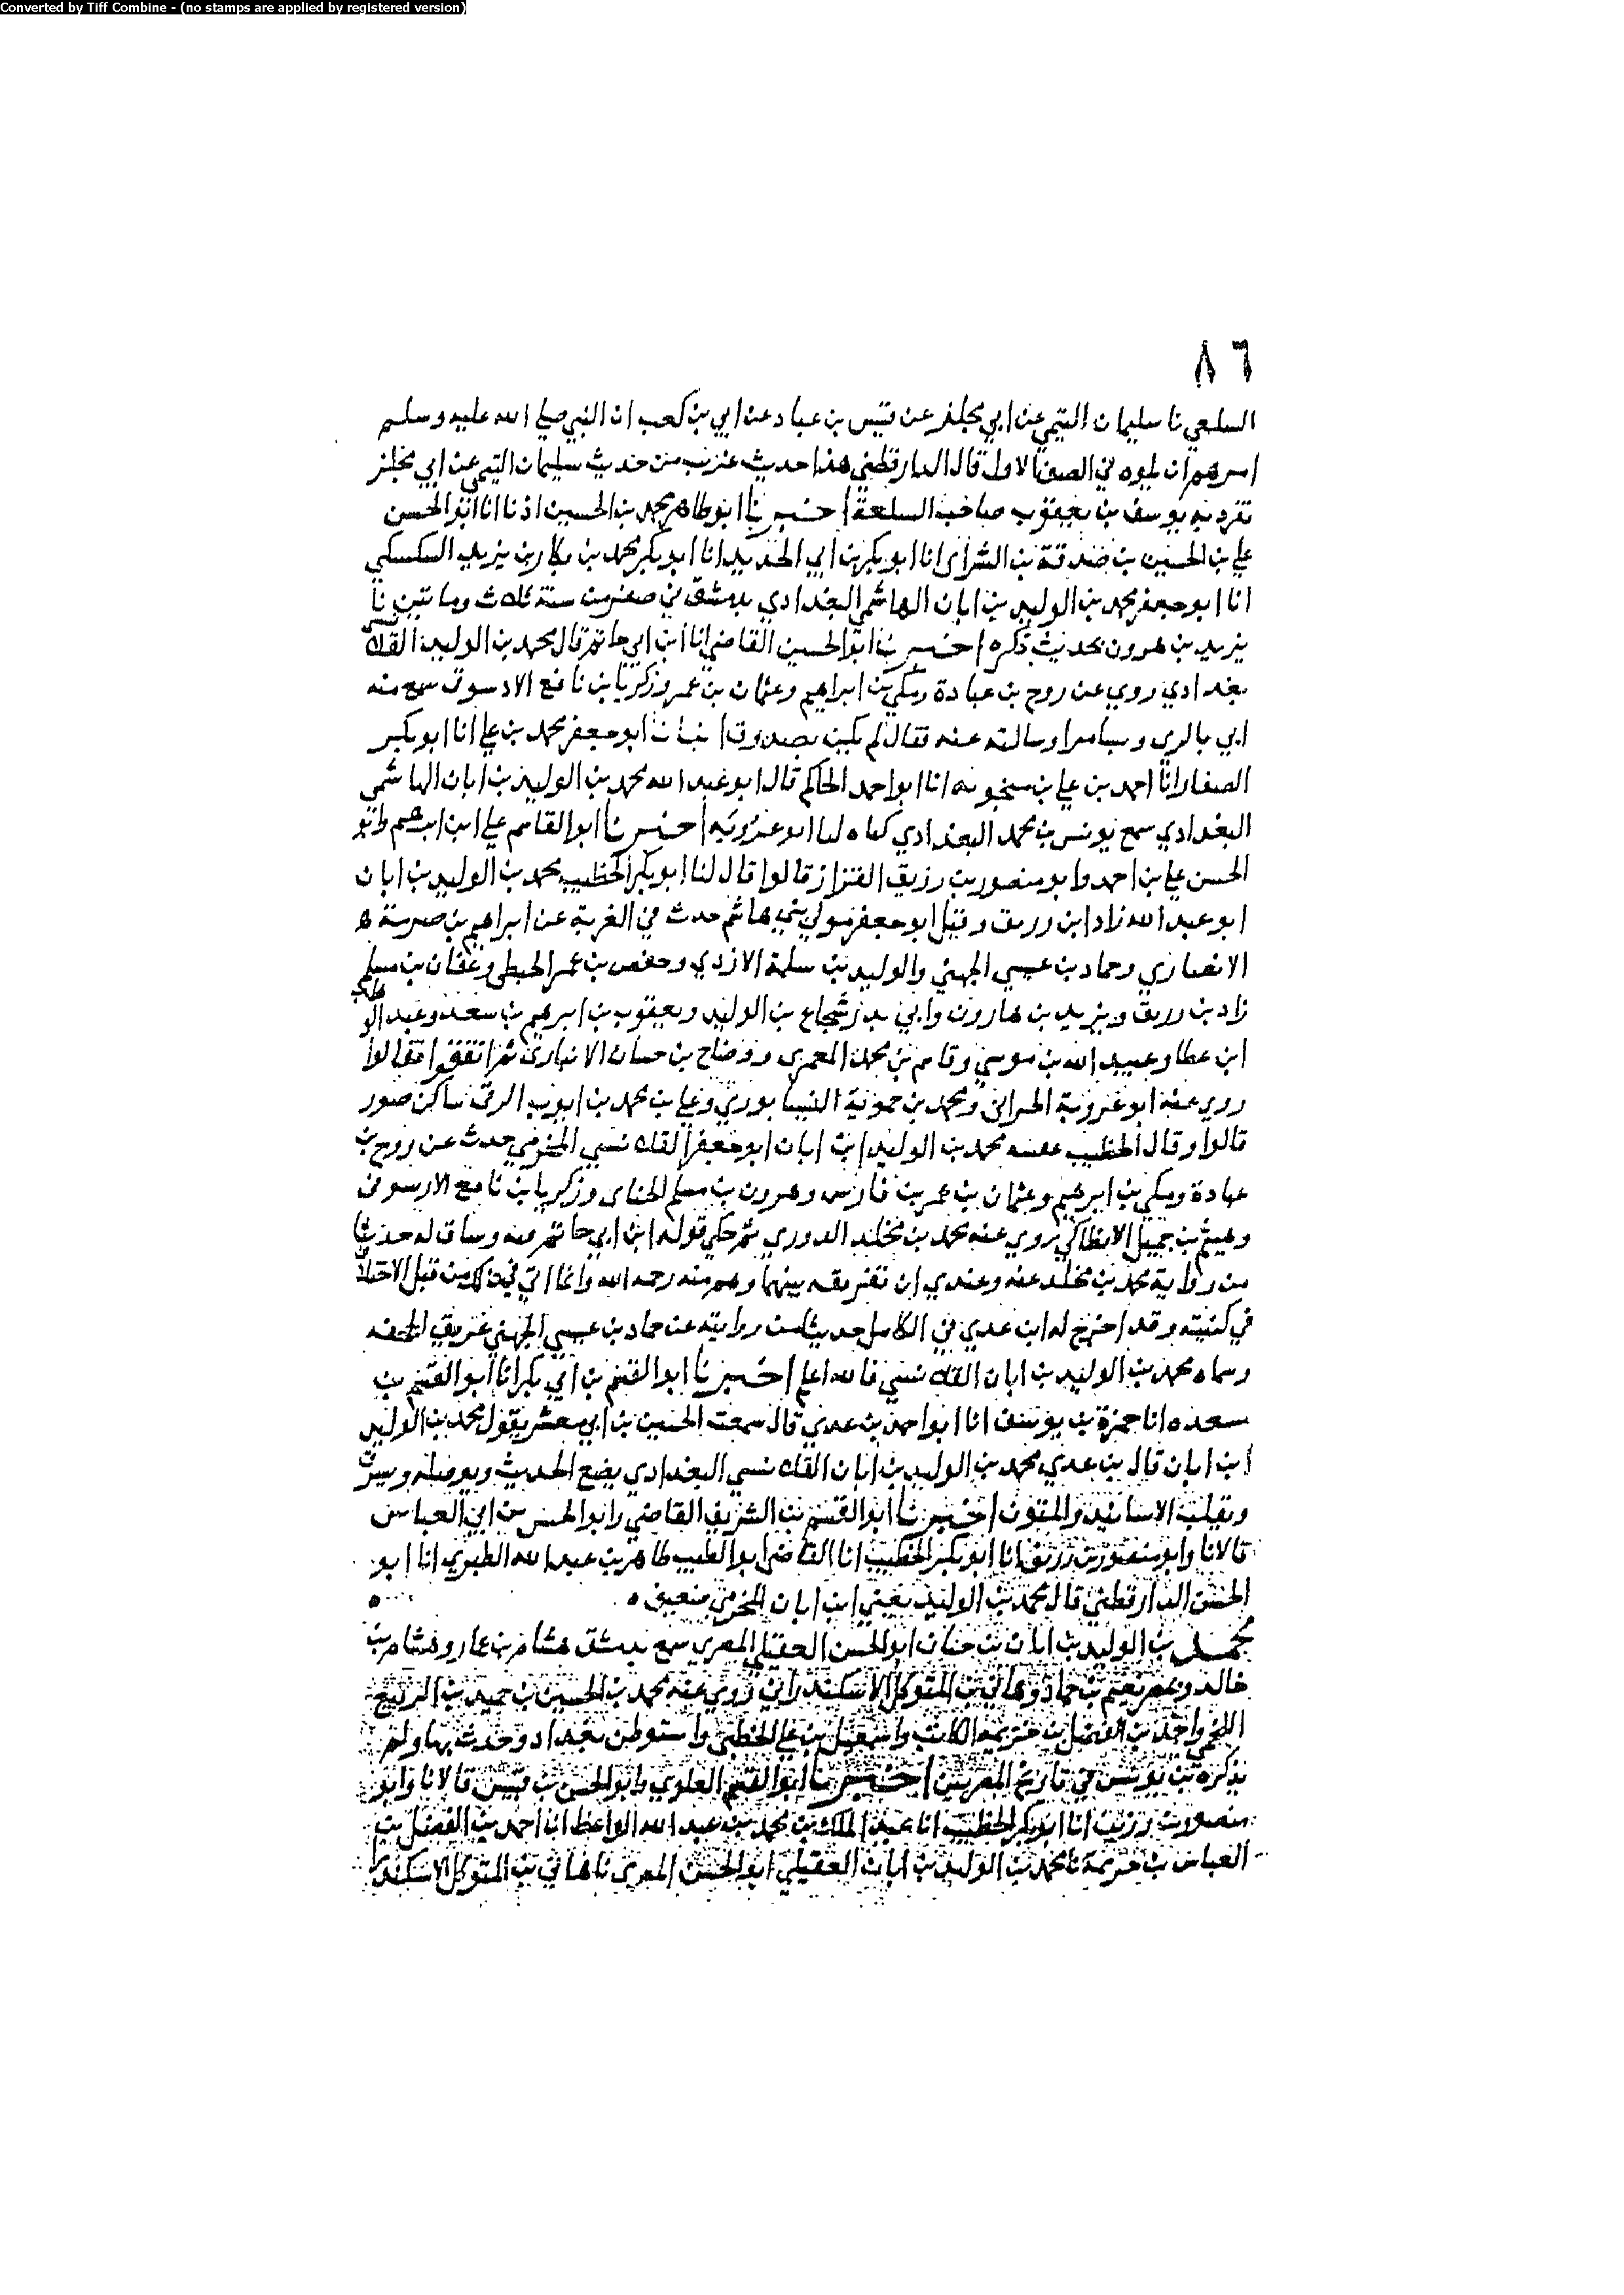 Converted by Tiff Combine - (no stamps are applied by registered version)
٨٦
السلعي نا سليمان التيمي عن ابي مجلز عن قيس بن عباد عن ابي بن كعب ان النبي صلي الله عليه وسلم
امرهم ان يلوه في الصف الاول قال الدارقطني هذا حديث غريب من حديث سليمان التيمي عن ابي مجلز
تفرد به يوسف بن يعقوب صاحب السلعة اخبرنا ابو طاهر محمد بن الحسين اذنا انا ابو الحسن
علي بن الحسين بن صدقة بن الشرابي انا ابو بكر بن ابي الحديد انا ابو بكر محمد بن بكار بن يزيد السكسكي
انا ابو جعفر محمد بن الوليد بن ابان الهاشمي البغدادي بدمشق في صفر من سنة ثلاث وماتين نا
يزيد بن هرون بحديث ذكره اخبرنا ابو الحسين القاضي انا ابن ابي حاتم قال محمد بن الوليد القلانسي
بغدادي روي عن روح بن عبادة ومكي بن ابراهيم وعثمان بن عمر وزكريا بن نافع الارسوفي سمع منه
ابي بالري وبسامرا وسالته عنه فقال لم يكن بصدوق انبانا ابو جعفر محمد بن علي انا ابو بكر
الصفار انا احمد بن علي بن منجويه انا ابو احمد الحاكم قال ابو عبد الله محمد بن الوليد بن ابان الهاشمي
البغدادي سمع يونس بن محمد البغدادي كناه لنا ابو عروبه اخبرنا ابو القاسم علي ابن ابرهيم وابو
الحسن علي بن احمد وابو منصور بن رزيق القزاز قالوا قال لنا ابو بكر الخطيب محمد بن الوليد بن ابان
ابو عبد الله زاد ابن زريق وقيل ابو جعفر مولي بني هاشم حدث في الغربة عن ابراهيم بن صرمة
الانصاري وحماد بن عيسي الجهني والوليد بن سلمة الازدي وحفص بن عمر الحبطي وعفان بن مسلم
زاد بن زريق ويزيد بن هارون وابي بدر شجاع بن الوليد ويعقوب بن ابرهيم بن سعد وعبد الوهاب
ابن عطا وعبيد الله بن موسي وقاسم بن محمد المعمري ووضاح بن حسان الانباري ثم اتفقوا فقالوا
روي عنه ابو عروبة الحراني ومحمد بن حمويه النيسابوري وعلي بن محمد بن ايوب الرقي ساكن صور
قالوا وقال الخطيب عقبه محمد بن الوليد ابن ابان ابو جعفر القلانسي المخرمي حدث عن روح بن
عبادة ومكي بن ابرهيم وعثمان بن عمر بن فارس وهرون بن مسلم الحناي وزكريا بن نافع الارسوفي
وهيثم بن جميل الانطاكي روي عنه محمد بن مخلد الدوري ثم حكي قول ابن ابي حاتم فيه وساق له حديثا
من رواية محمد بن مخلد عنه وعندي ان تفريقه بينهما وهم منه رحمه الله وانما اتي في ذلك من قبل الاختلاف
في كنيته وقد اخرج له ابن عدي في الكامل حديثا من روايته عن حماد بن عيسي الجهني غريق الجحفه
وسماه محمد بن الوليد بن ابان القلانسي فالله اعلم اخبرنا ابو القسم بن ابي بكر انا ابو القسم بن
مسعده انا حمزة بن يوسف انا ابو احمد بن عدي قال سمعت الحسين بن ابي معشر يقول محمد بن الوليد
ابن ابان قال بن عدي محمد بن الوليد بن ابان القلانسي البغدادي يضع الحديث ويوصله ويسرق
ويقلب الاسانيد والمتون اخبرنا ابو القسم بن الشريف القاضي وابو الحسن بن ابي العباس
قالا نا وابو منصور بن زريق انا ابو بكر الخطيب انا القاضي ابو الطيب طاهر بن عبد الله الطبري انا ابو
الحسن الدارقطني قال محمد بن الوليد يعني ابن ابان المخرمي ضعيف
محمد بن الوليد بن ابان بن حنان ابو الحسن العقيلي المصري سمع بدمشق هشام بن عمار وهشام بن
خالد وبمصر نعيم بن حماد وهاني بن المتوكل الاسكندراني روي عنه محمد بن الحسين بن حميد بن الربيع
اللخمي واحمد بن الفضل بن خزيمه الكاتب واسمعيل بن علي الخطبي واستوطن بغداد وحدث بها ولم
يذكره بن يونس في تاريخ المصريين اخبرنا ابو القسم العلوي وابو الحسن بن قبيس قالا نا وابو
منصور بن زريق انا ابو بكر الخطيب انا عبد الملك بن محمد بن عبد الله الواعظ انا احمد بن الفضل بن
العباس بن خزيمة نا محمد بن الوليد بن ابان العقيلي ابو الحسن المصري نا هاني بن المتوكل الاسكندراني